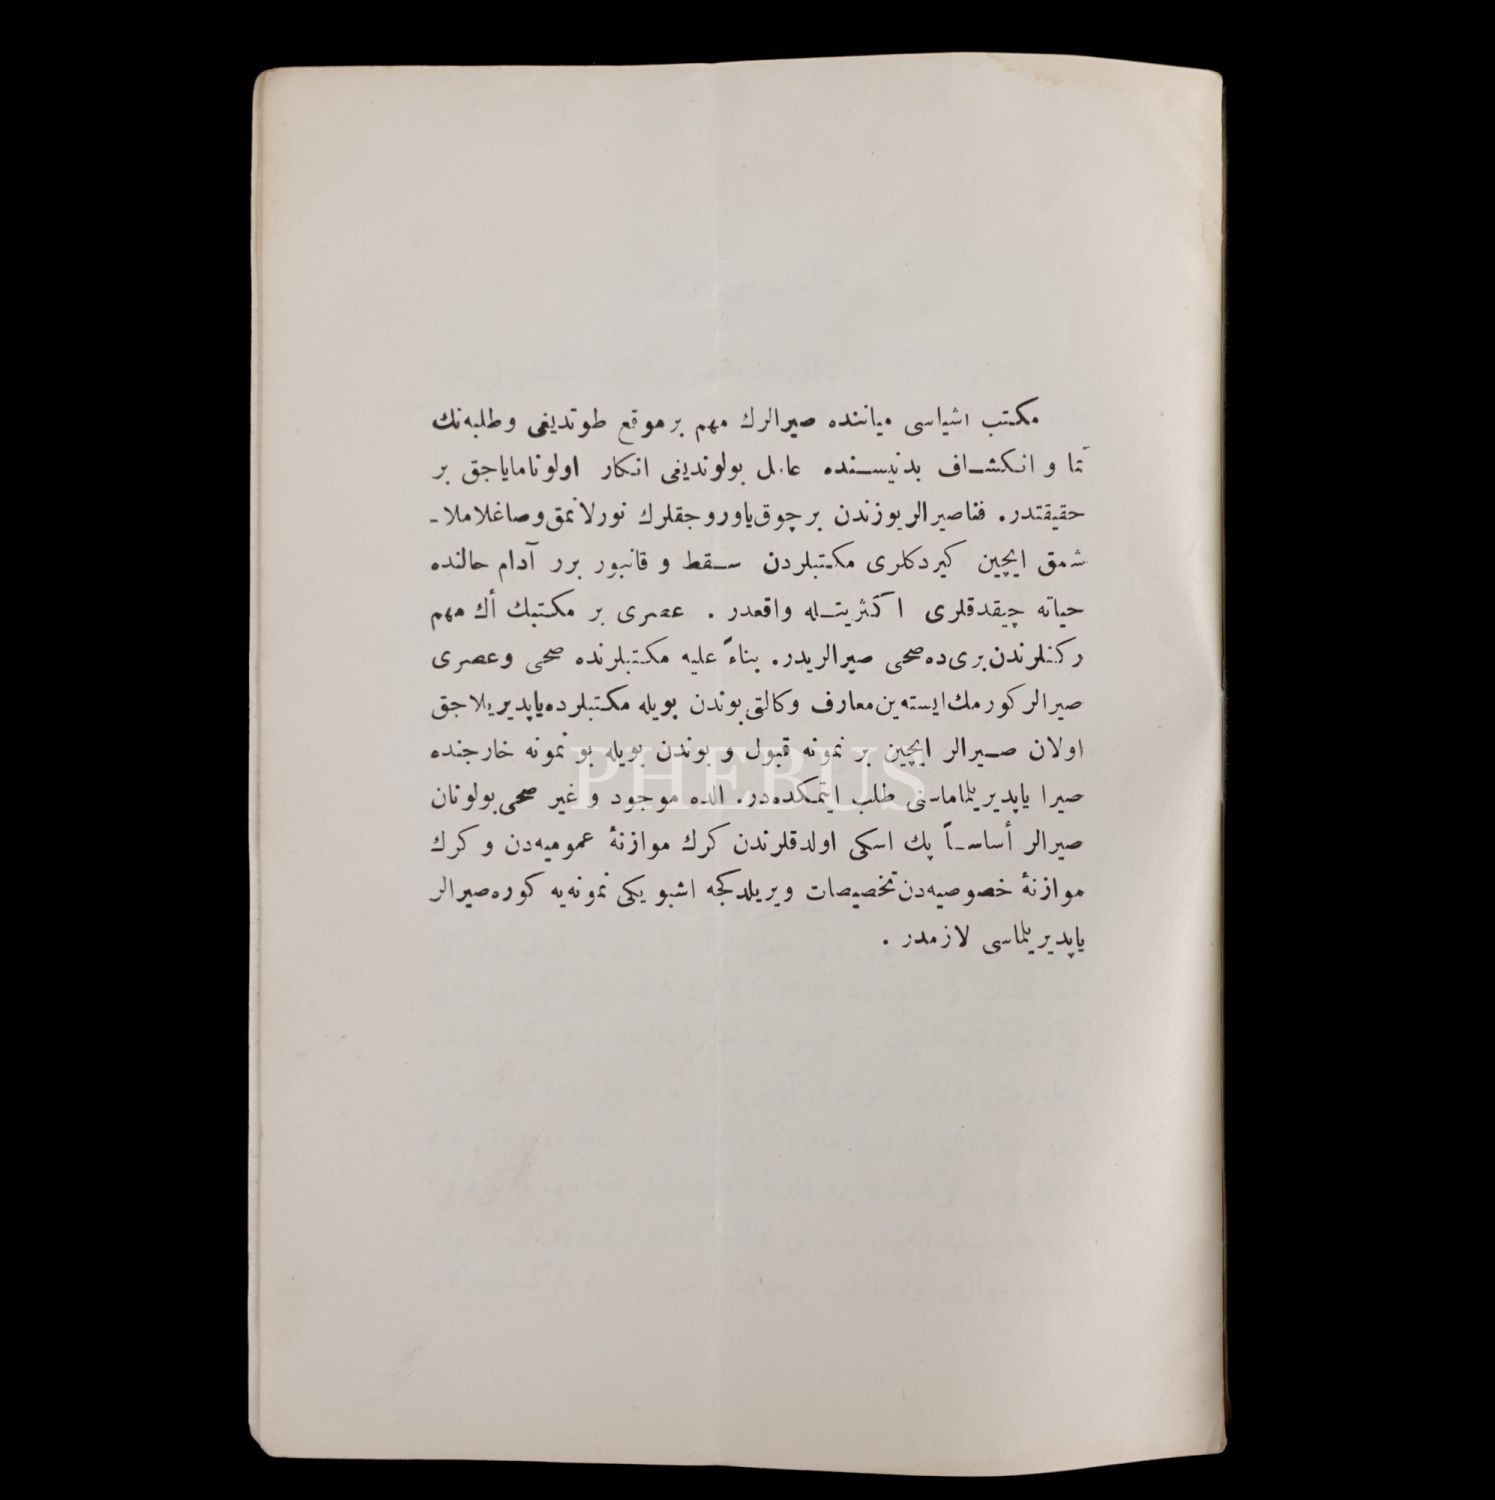 مكتب اشیاسی میاننده صیرالرك مهم برموقع طوتدیغی وطلبه‌نك
نما و انكشاف بدنیسنده عامل بولوندیغی انكار اولونامایاجق بر
حقیقتدر. فناصیرالریوزندن برچوق‌یاوروجقلرك نورلانمق‌وصاغلاملا-
شمق ایچین كیردكلری مكتبلردن سقط و قانبور برر آدام حالنده
حیاته چیقدقلری اكثریتله واقعدر . عصری بر مكتبك أك مهم
ركنلرندن‌بری‌ده‌صحی صیرالریدر. بناءً علیه مكتبلرنده صحی وعصری
صیرالركورمك‌ایسته‌ین‌معارف وكالتی‌بوندن بویله مكتبلرده‌یاپدیریلاجق
اولان صیرالر ایچین بر نمونه قبول و بوندن بویله بو نمونه خارجنده
PHEBUS
صیرا یاپدیریلماماسنی طلب ایتمكده‌در. الده موجود و غیر صحی‌بولونان
صیرالر أساساً پك اسكی اولدقلرندن كرك موازنهٔ عمومیه‌دن و كرك
موازنهٔ خصوصیه‌دن‌تخصیصات ویریلدكجه اشبو یكی نمونه‌یه كوره‌صیرالر
یاپدیریلماسی لازمدر .